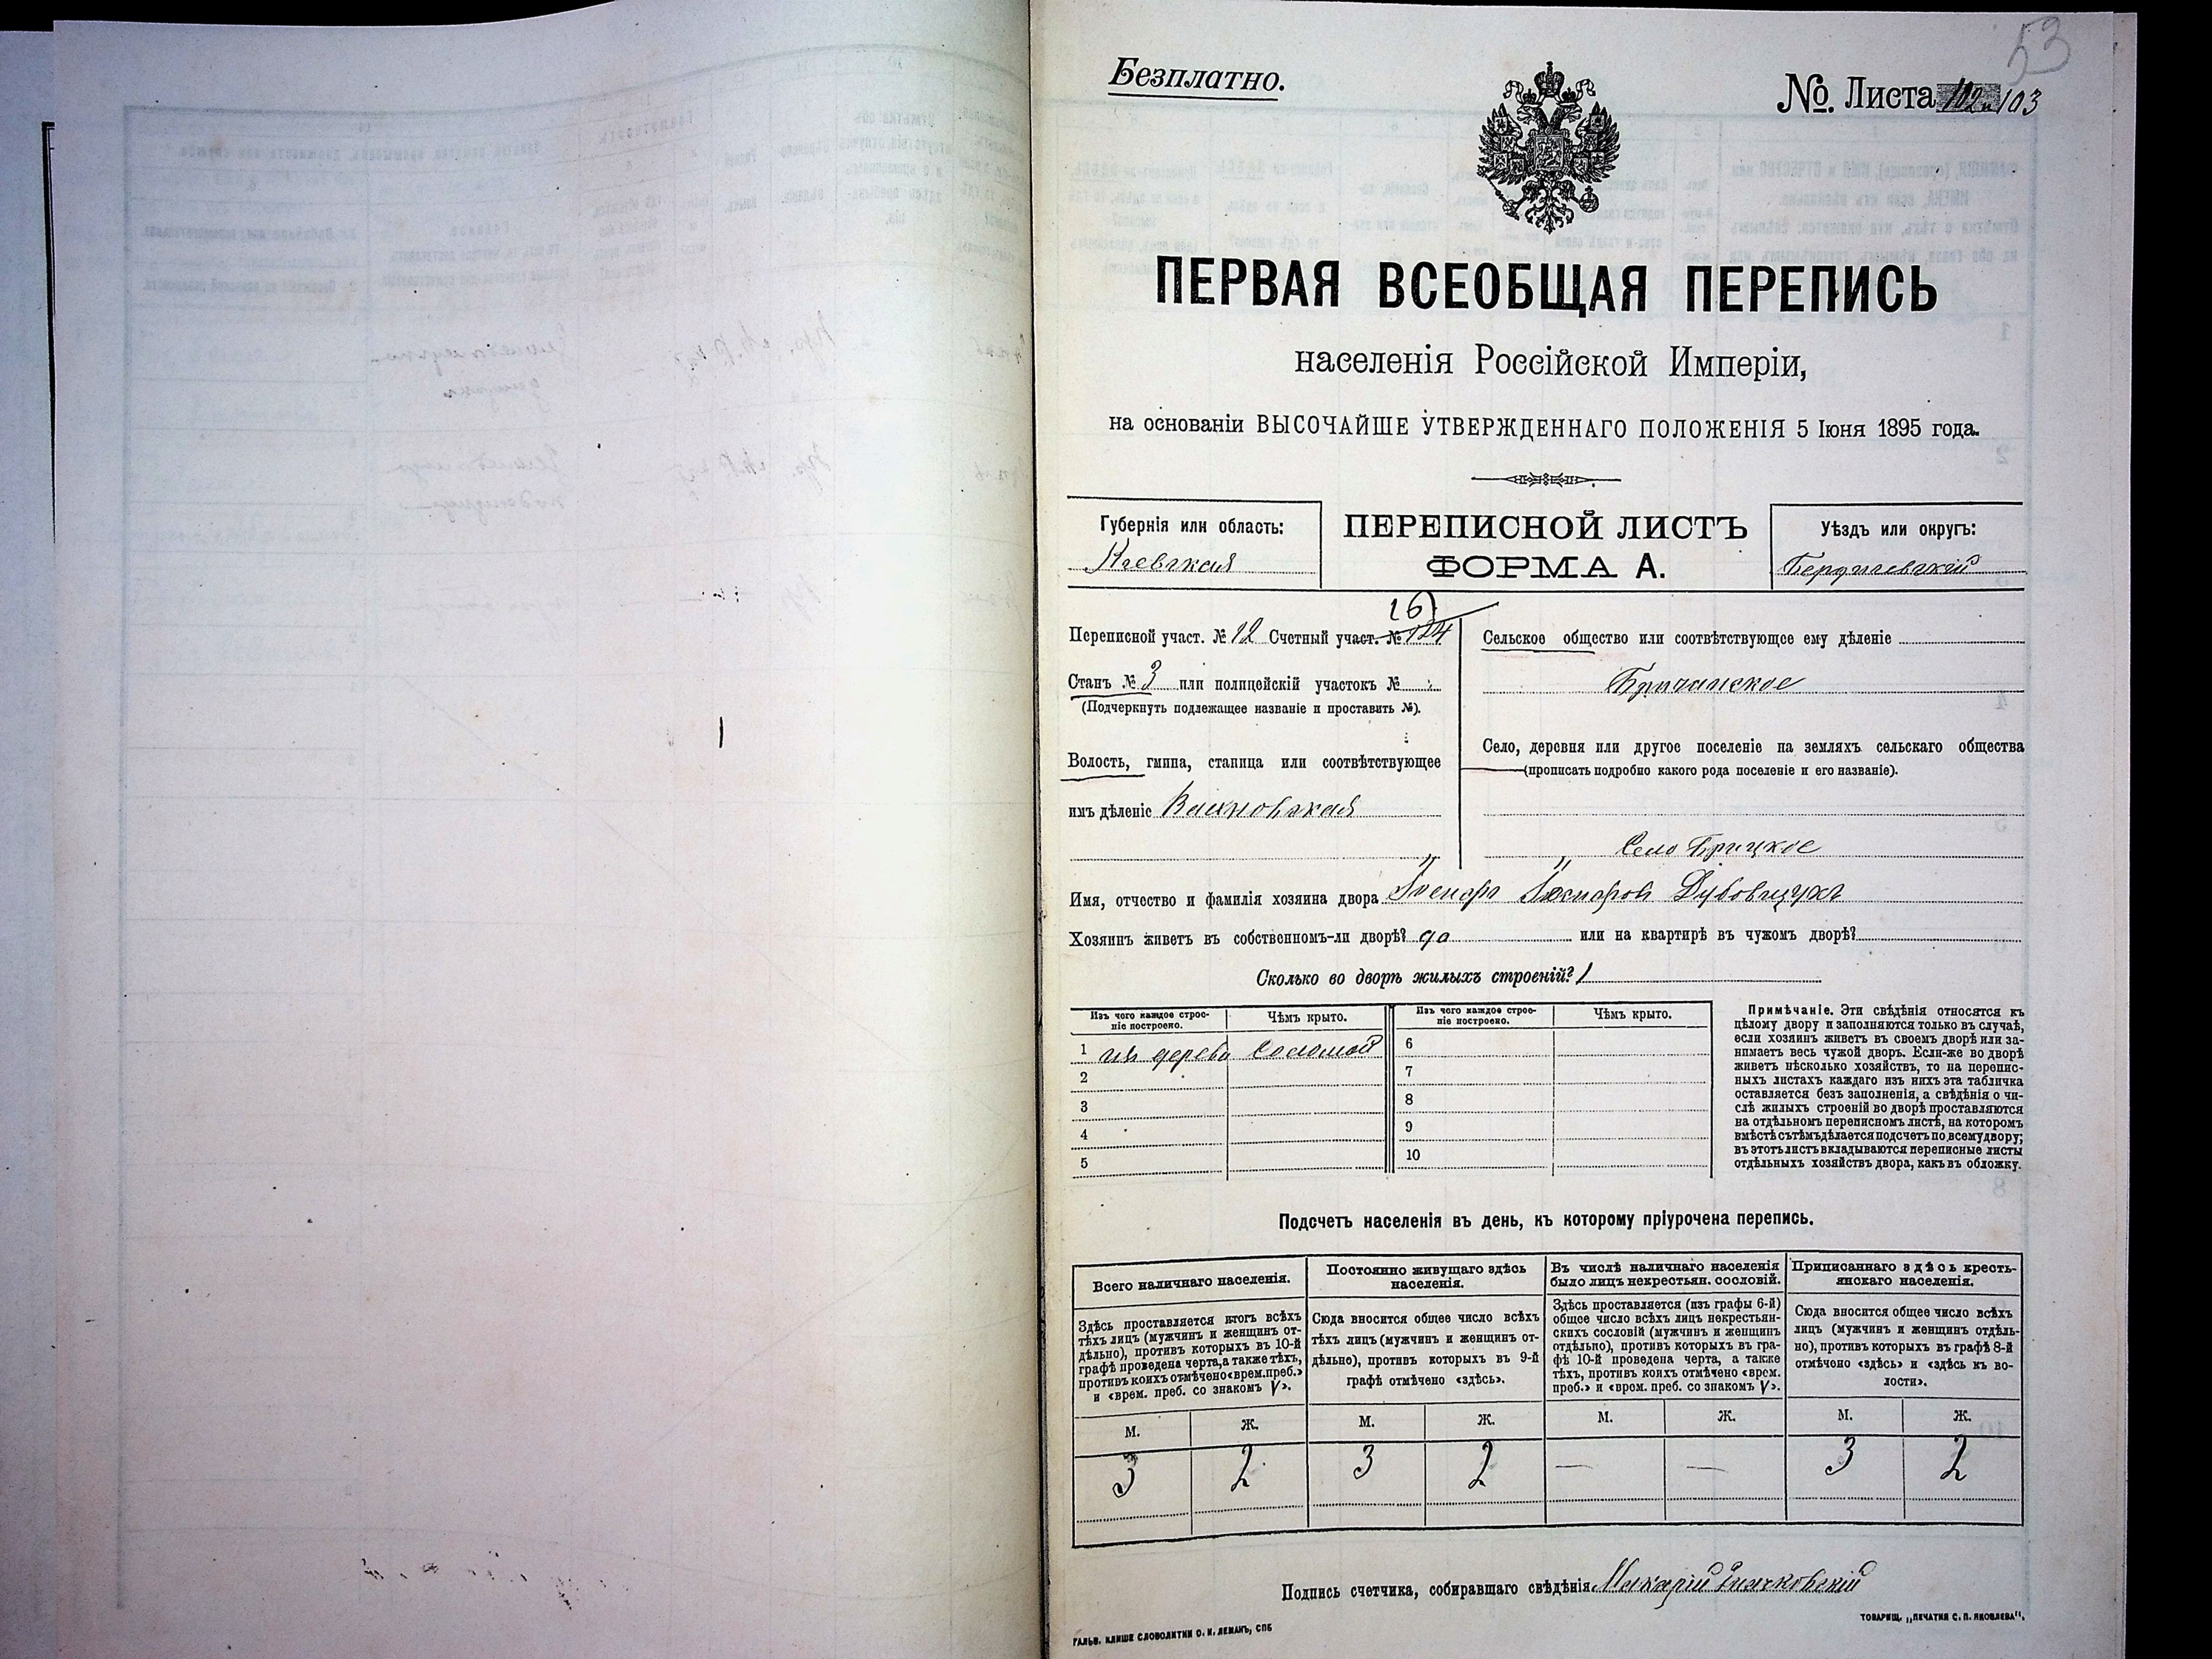 53
Безплатно.
№. Листа 102 и 103
ПЕРВАЯ ВСЕОБЩАЯ ПЕРЕПИСЬ
населенія Россійской Имперіи,
на основаніи ВЫСОЧАЙШЕ УТВЕРЖДЕННАГО ПОЛОЖЕНІЯ 5 Іюня 1895 года.
Губернія или область:
Кіевская
ПЕРЕПИСНОЙ ЛИСТЪ
ФОРМА А.
Уѣздъ или округъ:
Бердичевскій
Переписной участ. № 12 Счетный участ. № 124
Станъ № 3 или полицейскій участокъ №
(Подчеркнуть подлежащее названіе и проставить №).
Волость, гмина, станица или соотвѣтствующее
имъ дѣленіе Вахновская
Сельское общество или соотвѣтствующее ему дѣленіе
Брицкое
Село, деревня или другое поселеніе на земляхъ сельскаго общества
(прописать подробно какого рода поселеніе и его названіе).
Село Брицкое
Имя, отчество и фамилія хозяина двора
Хозяинъ живетъ въ собственномъ-ли дворѣ? да или на квартирѣ въ чужомъ дворѣ?
Сколько во дворѣ жилыхъ строеній? 1
Изъ чего каждое строе-
ніе построено.
Чѣмъ крыто.
Изъ чего каждое строе-
ніе построено.
Чѣмъ крыто.
1 изъ дерева соломой
2
3
4
5
6
7
8
9
10
Примѣчаніе. Эти свѣдѣнія относятся къ
цѣлому двору и заполняются только въ случаѣ,
если хозяинъ живетъ въ своемъ дворѣ или за-
нимаетъ весь чужой дворъ. Если-же во дворѣ
живетъ нѣсколько хозяйствъ, то на перепис-
ныхъ листахъ каждаго изъ нихъ эта табличка
оставляется безъ заполненія, а свѣдѣнія о чи-
слѣ жилыхъ строеній во дворѣ проставляются
на отдѣльномъ переписномъ листѣ, на которомъ
вмѣстѣ съ тѣмъ дѣлается подсчетъ по всему двору;
въ этотъ листъ вкладываются переписные листы
отдѣльныхъ хозяйствъ двора, какъ въ обложку.
Подсчетъ населенія въ день, къ которому пріурочена перепись.
Всего наличнаго населенія.
Здѣсь проставляется итогъ всѣхъ
тѣхъ лицъ (мужчинъ и женщинъ от-
дѣльно), противъ которыхъ въ 10-й
графѣ проведена черта, а также тѣхъ,
противъ коихъ отмѣчено «врем. преб.»
и «врем. преб. со знакомъ V».
Постоянно живущаго здѣсь
населенія.
Сюда вносится общее число всѣхъ
тѣхъ лицъ (мужчинъ и женщинъ от-
дѣльно), противъ которыхъ въ 9-й
графѣ отмѣчено «здѣсь».
Въ числѣ наличнаго населенія
было лицъ некрестьян. сословій.
Здѣсь проставляется (изъ графы 6-й)
общее число всѣхъ лицъ некрестьян-
скихъ сословій (мужчинъ и женщинъ
отдѣльно), противъ которыхъ въ гра-
фѣ 10-й проведена черта, а также
тѣхъ, противъ коихъ отмѣчено «врем.
преб.» и «врем. преб. со знакомъ V».
Приписаннаго здѣсь кресть-
янскаго населенія.
Сюда вносится общее число всѣхъ
лицъ (мужчинъ и женщинъ отдѣль-
но), противъ которыхъ въ графѣ 8-й
отмѣчено «здѣсь» и «здѣсь къ во-
лости».
М. Ж. М. Ж. М. Ж. М. Ж.
3 2 3 2 — — 3 2
Подпись счетчика, собиравшаго свѣдѣнія Макарій
ГАЛЬВ. КЛИШЕ СЛОВОЛИТНИ О. И. ЛЕМАНЪ, СПБ
ТОВАРИЩ. „ПЕЧАТНЯ С. П. ЯКОВЛЕВА".